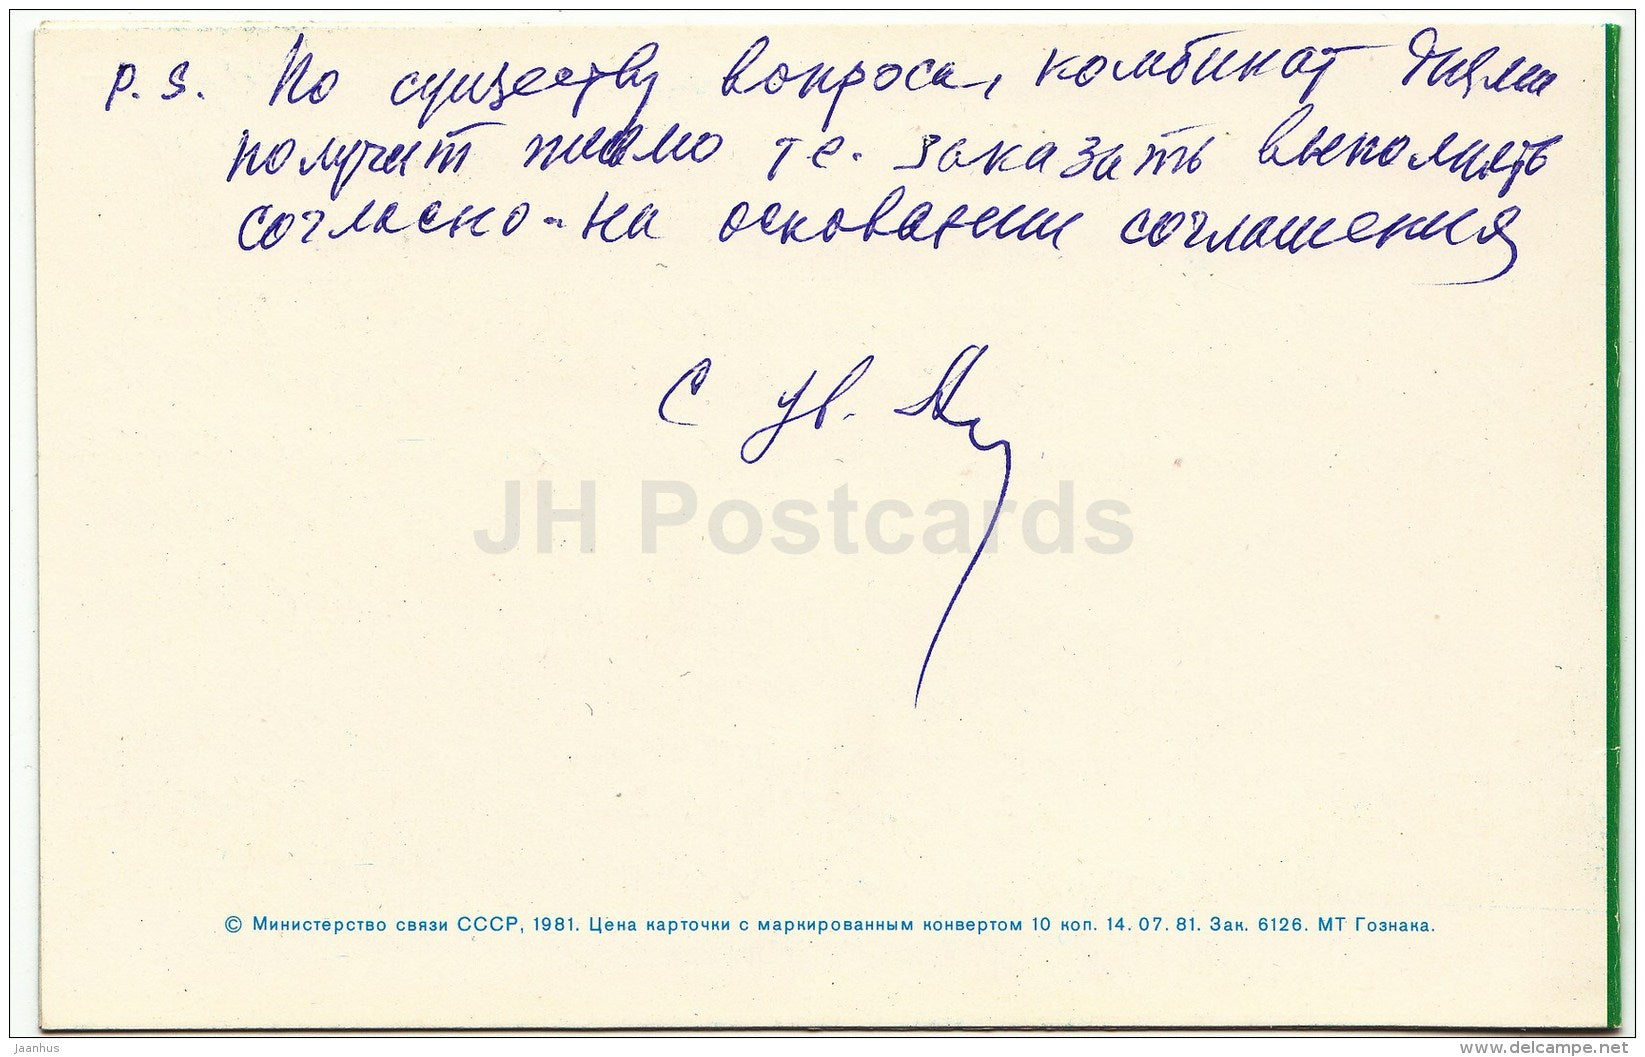 P.S. По существу вопроса, комбинат днями
получит письмо т.е. заказать выполнять
согласно - на основании соглашения
С ув.
JH Postcards
© Министерство связи СССР, 1981. Цена карточки с маркированным конвертом 10 коп. 14. 07. 81. Зак. 6126. МТ Гознака.
jaanhus
www.delcampe.net